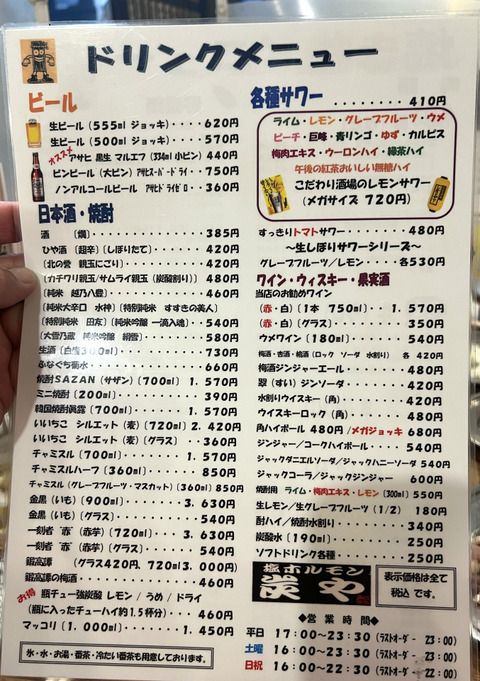 ドリンクメニュー
ビール
生ビール (555ml ジョッキ)・・・・620円
生ビール (500ml ジョッキ)・・・・570円
オススメ アサヒ 黒生 マルエフ (334ml 小ビン) 440円
ビンビール (大ビン) アサヒスーパードライ・・750円
ノンアルコールビール アサヒドライゼロ・・360円
日本酒・焼酎
酒 〔燗〕・・・・・・・・・・385円
ひや酒 〔超辛〕〔しぼりたて〕・・・・420円
〔北の誉 親玉にごり〕・・・・・・420円
〔カチワリ親玉/サムライ親玉 (炭酸割り)〕480円
〔純米 越乃八豊〕・・・・・・・460円
〔純米大辛口 水神〕〔特別純米 すすきの美人〕
〔特別純米 田友〕〔純米吟醸 一滴入魂〕・・540円
〔大雪乃蔵 純米吟醸 絹雪〕・・・・580円
生酒 (白雪300ml)・・・・・・・730円
ふなぐち菊水・・・・・・・・660円
焼酎SAZAN (サザン)〔700ml〕 1.570円
ミニ焼酎〔200ml〕・・・・・・390円
韓国焼酎眞露〔700ml〕・・・・1.570円
いいちこ シルエット (麦)〔720ml〕2.420円
いいちこ シルエット (麦)〔グラス〕・・360円
チャミスル〔700ml〕・・・・・1.570円
チャミスルハーフ〔360ml〕・・・・850円
チャミスル (グレープフルーツ・マスカット)〔360ml〕850円
金黒 (いも)〔900ml〕・・・・3.630円
金黒 (いも)〔グラス〕・・・・・540円
一刻者 赤 (赤芋)〔720ml〕・・3.630円
一刻者 赤 (赤芋)〔グラス〕・・・540円
鍛高譚 (グラス420円、720ml3.000円)
鍛高譚の梅酒・・・・・・・・460円
お得 瓶チュー強炭酸 レモン / うめ / ドライ
(瓶に入ったチューハイ約1.5杯分)・・・460円
マッコリ〔1.000ml〕・・・・・1.450円
氷・水・お湯・番茶・冷たい番茶も用意しております。
各種サワー ・・・・・・・・410円
ライム・レモン・グレープフルーツ・ウメ
ピーチ・巨峰・青リンゴ・ゆず・カルピス
梅肉エキス・ウーロンハイ・緑茶ハイ
午後の紅茶おいしい無糖ハイ
こだわり酒場のレモンサワー
(メガサイズ 720円)
すっきりトマトサワー・・・・・・480円
～生しぼりサワーシリーズ～
グレープフルーツ/レモン・・・・各530円
ワイン・ウィスキー・果実酒
当店のお勧めワイン
(赤・白)〔1本 750ml〕・・1.570円
(赤・白)〔グラス〕・・・・・・350円
ウメワイン〔180ml〕・・・・・540円
梅酒・古酒・梅酒 (ロック ソーダ 水割り) 各 420円
梅酒ジンジャーエール・・・・・・480円
翠 (すい) ジンソーダ・・・・・・420円
水割りウイスキー (角)・・・・・・420円
ウイスキーロック (角)・・・・・・480円
角ハイボール 480円 / メガジョッキ 680円
ジンジャー/コークハイボール・・・・540円
ジャックダニエルソーダ/ジャックハニーソーダ 540円
ジャックコーラ/ジャックジンジャー 600円
焼酎用 ライム・梅肉エキス・レモン (300ml) 550円
生レモン/生グレープフルーツ (1/2) 180円
酎ハイ/焼酎水割り・・・・・・・340円
炭酸水〔190ml〕・・・・・・・250円
ソフトドリンク各種・・・・・・・250円
塩ホルモン
炭や
表示価格は全て
税込 です。
◆営 業 時 間◆
平日 17:00～23:30 (ラストオーダー 23:00)
土曜 16:00～23:30 (ラストオーダー 23:00)
日祝 16:00～22:30 (ラストオーダー 22:00)